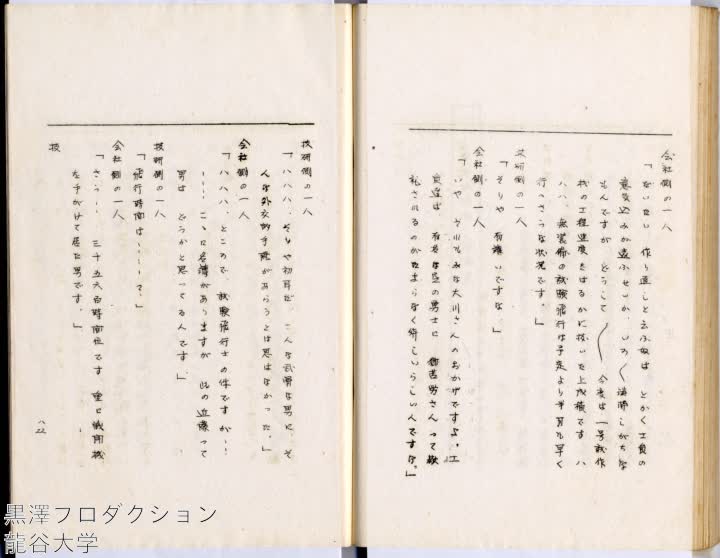 会社側の一人
「だいたい 作り直しと云ふ奴は とかく工員の
意気込みが違ふせいか、いろ〱 渋滞しがちな
もんですが どうして〱 今度は一号試作
機の工程速度をはるかに抜いた上成積です ハ
ハ、無装備の試験飛行は予定より半月も早く
行へさうな状況です。」
技研側の一人
「そりや 有難いですな。」
会社側の一人
「いや それもみな大川さんのおかげですよ。工
員達は 有名な空の勇士に 御苦労さんって敬
礼されるのがたまらなく嬉しいらしいんですな。」
技研側の一人
「ハハハ、そりや初耳だ、こんな武骨な男に、そ
んな外交的手腕があらうとは思はなかった。」
会社側の一人
「ハハハ、ところで 試験飛行士の件ですが‥‥
‥‥ こゝに名簿がありますが 此の近藤って
男は どうかと思ってるんです。」
技研側の一人
「飛行時間は‥‥‥?」
会社側の一人
「さう‥‥ 三千五六百時間位です 重に戦闘機
を手がけて居た男です。」
技
八22
黒澤プロダクション
龍谷大学